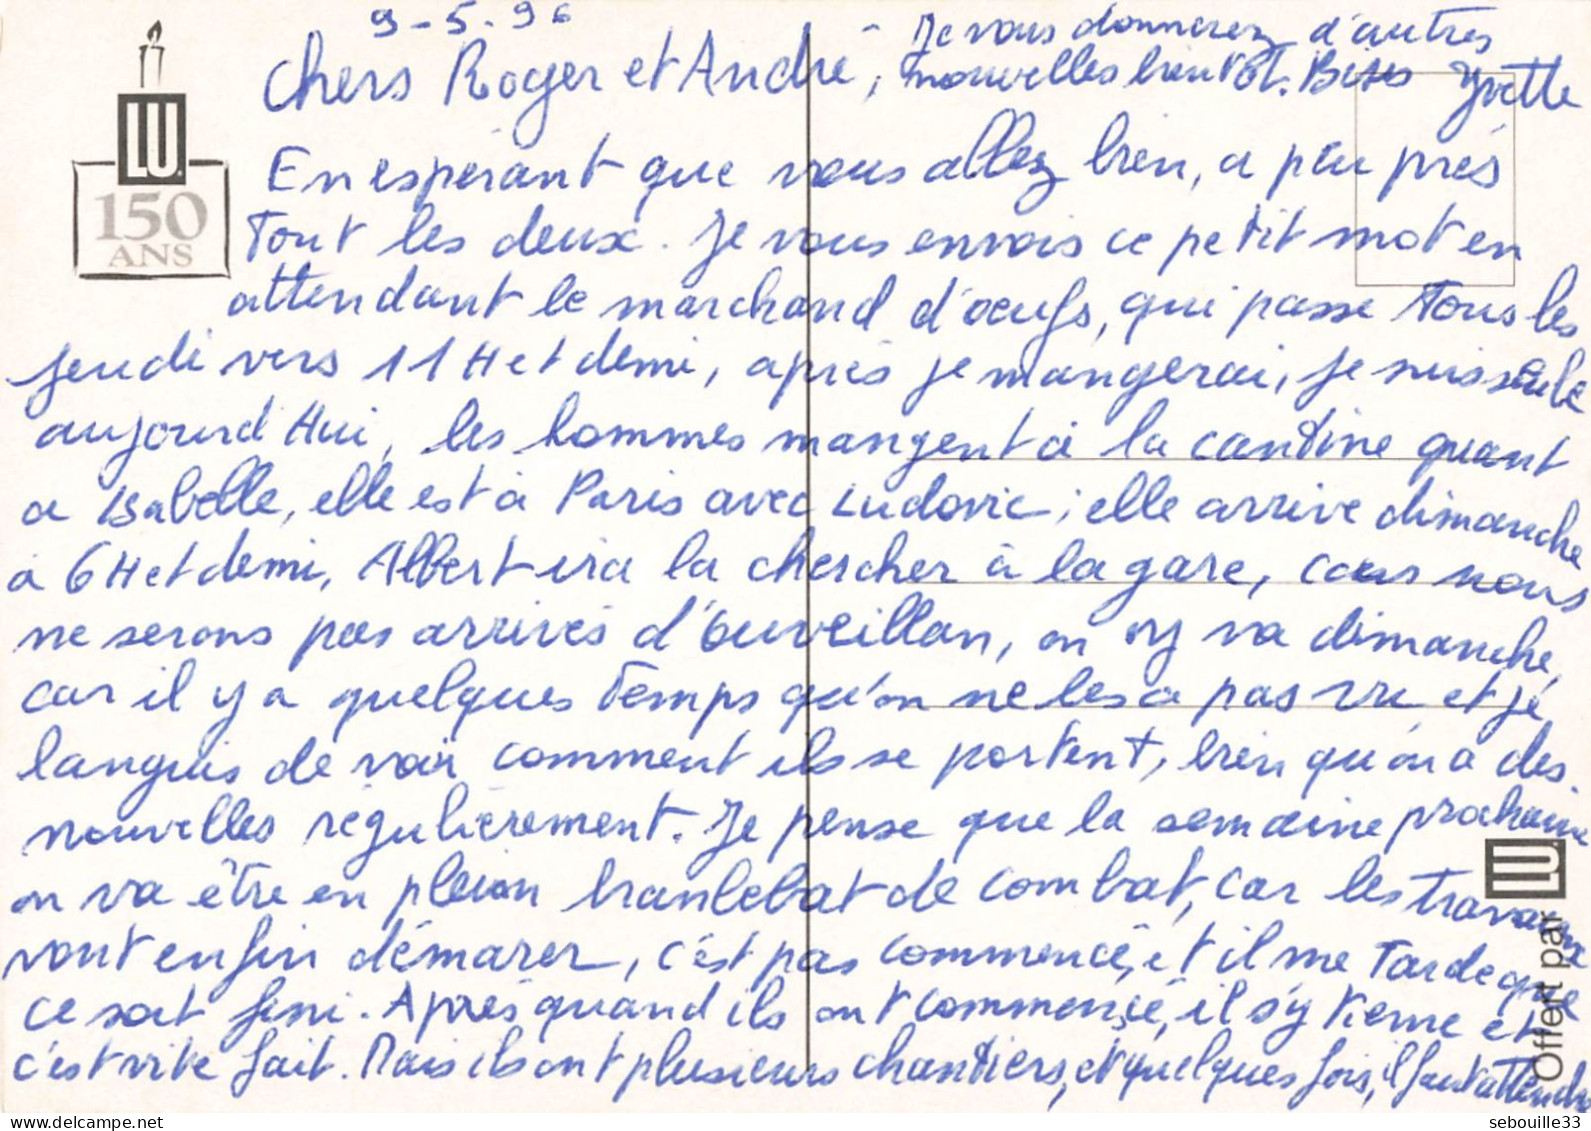 9-5-96
Chers Roger et André,
En espérant que vous allez bien, a peu près
tout les deux. Je vous envois ce petit mot en
attendant le marchand d'oeufs, qui passe tous les
jeudi vers 11 H et demi, après je mangerai, je suis seule
aujourd Hui, les hommes mangent à la cantine quant
a Isabelle, elle est à Paris avec Ludovic; elle arrive dimanche
à 6 H et demi, Albert ira la chercher à la gare, car nous
ne serons pas arrivés d'Ouveillan, on y va dimanche,
car il y a quelques temps qu'on ne les a pas vu et je
languis de voir comment ils se portent, bien qu'on a des
nouvelles régulièrement. Je pense que la semaine prochaine
on va être en plein branlebat de combat, car les travaux
vont enfin démarer, c'est pas commencé, et il me tarde que
ce soit fini. Après quand ils ont commencé, il s'y tienne et
c'est vite fait. Mais ils ont plusieurs chantiers, et quelques fois, il faut attendre
Je vous donnerez d'autres
nouvelles bientôt. Bises Yvette
LU
150
ANS
Offert par LU
sebouille33